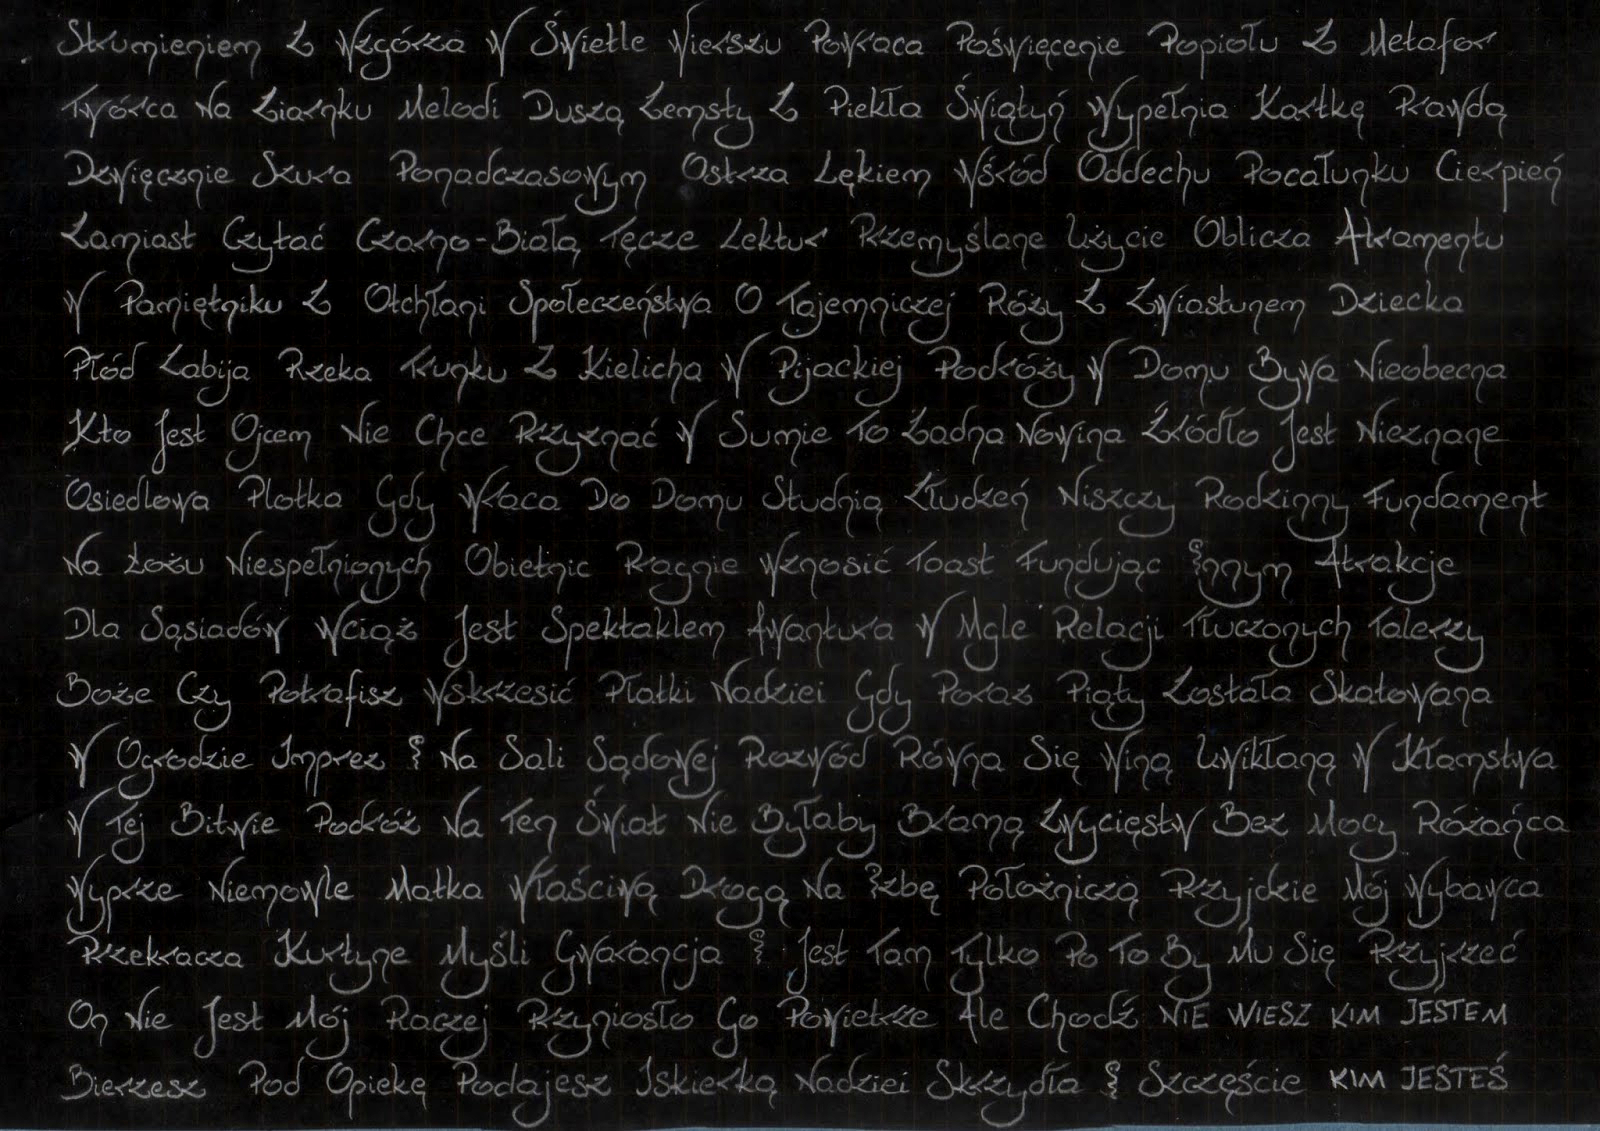 Strumieniem Z Wzgórza W Świetle Wierszu Powraca Poświęcenie Popiołu Z Metafor
Twórca Na Ziarnku Melodi Duszą Zemsty Z Piekła Świątyń Wypełnia Kartkę Prawdą
Dzwięcznie Szura Ponadczasowym Ostrza Lękiem Wśród Oddechu Pocałunku Cierpień
Zamiast Czytać Czarno-Białą Tęcze Lektur Przemyślane Użycie Oblicza Atramentu
W Pamiętniku Z Otchłani Społeczeństwa O Tajemniczej Róży Z Zwiastunem Dziecka
Płód Zabija Rzeka Trunku Z Kielicha W Pijackiej Podróży W Domu Bywa Nieobecna
Kto Jest Ojcem Nie Chce Przyznać W Sumie To Żadna Nowina Źródło Jest Nieznane
Osiedlowa Plotka Gdy Wraca Do Domu Studnią Złudzeń Niszczy Rodzinny Fundament
Na Łożu Niespełnionych Obietnic Pragnie Wznosić Toast Fundując Innym Atrakcje
Dla Sąsiadów Wciąż Jest Spektaklem Awantura W Mgle Relacji Tłuczonych Talerzy
Boże Czy Potrafisz Wskrzesić Płatki Nadziei Gdy Poraz Piąty Została Skatowana
W Ogrodzie Imprez I Na Sali Sądowej Rozwód Równa Się Winą Uwikłaną W Kłamstwa
W Tej Bitwie Podróż Na Ten Świat Nie Byłaby Bramą Zwycięstw Bez Mocy Różańca
Wyprze Niemowle Matka Właściwą Drogą Na Izbę Położniczą Przyjdzie Mój Wybawca
Przekracza Kurtyne Myśli Gwarancja I Jest Tam Tylko Po To By Mu Się Przyjrzeć
On Nie Jest Mój Raczej Przyniosło Go Powietrze Ale Chodź NIE WIESZ KIM JESTEM
Bierzesz Pod Opiekę Podajesz Iskierką Nadziei Skrzydła I Szczęście KIM JESTEŚ